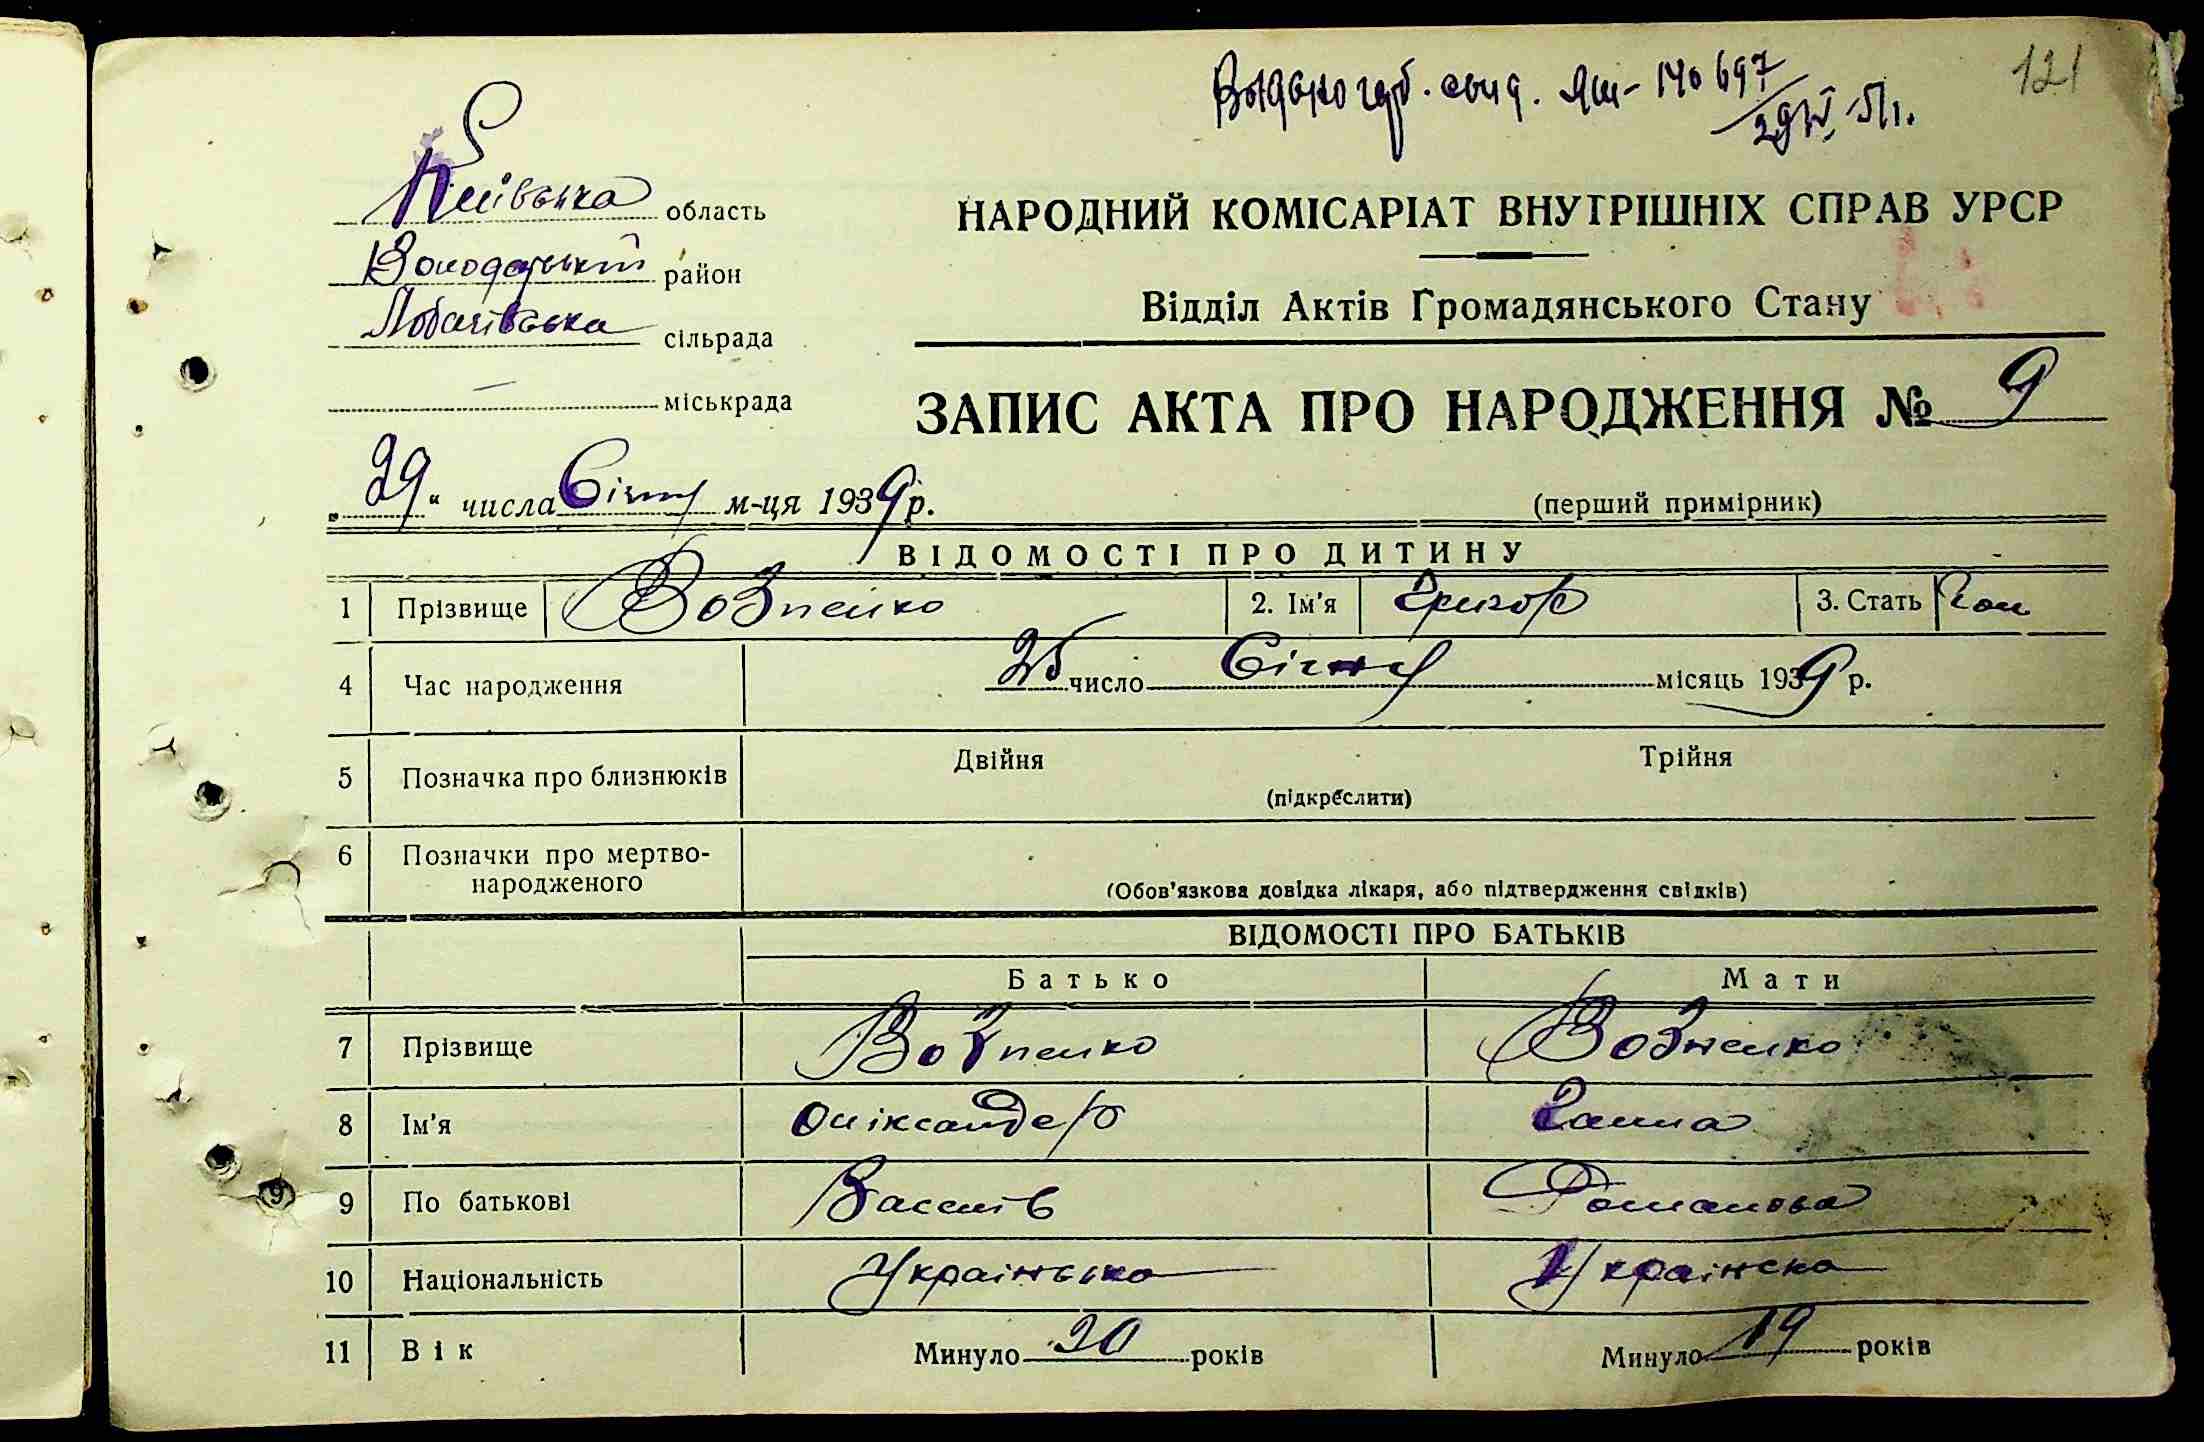 121
Київська область
Володарський район
Лобачівська сільрада
— міськрада
НАРОДНИЙ КОМІСАРІАТ ВНУТРІШНІХ СПРАВ УРСР
Відділ Актів Громадянського Стану
ЗАПИС АКТА ПРО НАРОДЖЕННЯ № 9
„29“ числа Січня м-ця 1939 р.
(перший примірник)
ВІДОМОСТІ ПРО ДИТИНУ
1 Прізвище Вовненко 2. Ім'я Григор 3. Стать Чол
4 Час народження 25 число Січня місяць 1939 р.
5 Позначка про близнюків Двійня Трійня
(підкреслити)
6 Позначки про мертво-
народженого
(Обов'язкова довідка лікаря, або підтвердження свідків)
ВІДОМОСТІ ПРО БАТЬКІВ
Батько Мати
7 Прізвище Вовненко Вовненко
8 Ім'я Оліксандер Ганна
9 По батькові Василів Романова
10 Національність Українська Українска
11 Вік Минуло 20 років Минуло 19 років